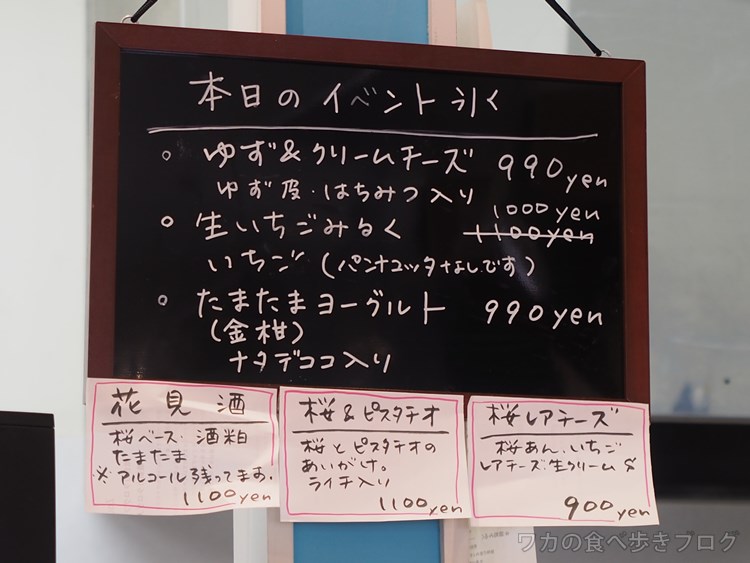 本日のイベント氷
○ ゆず&クリームチーズ 990yen
ゆず皮・はちみつ入り
○ 生いちごみるく 1000yen 1100yen
いちご(パンナコッタなしです)
○ たまたまヨーグルト 990yen
(金柑)
ナタデココ入り
花見酒
桜ベース・酒粕
たまたま
※アルコール残ってます。
1100yen
桜&ピスタチオ
桜とピスタチオの
あいがけ。
ライチ入り
1100yen
桜レアチーズ
桜あん、いちご
レアチーズ・生クリーム
900yen
ワカの食べ歩きブログ